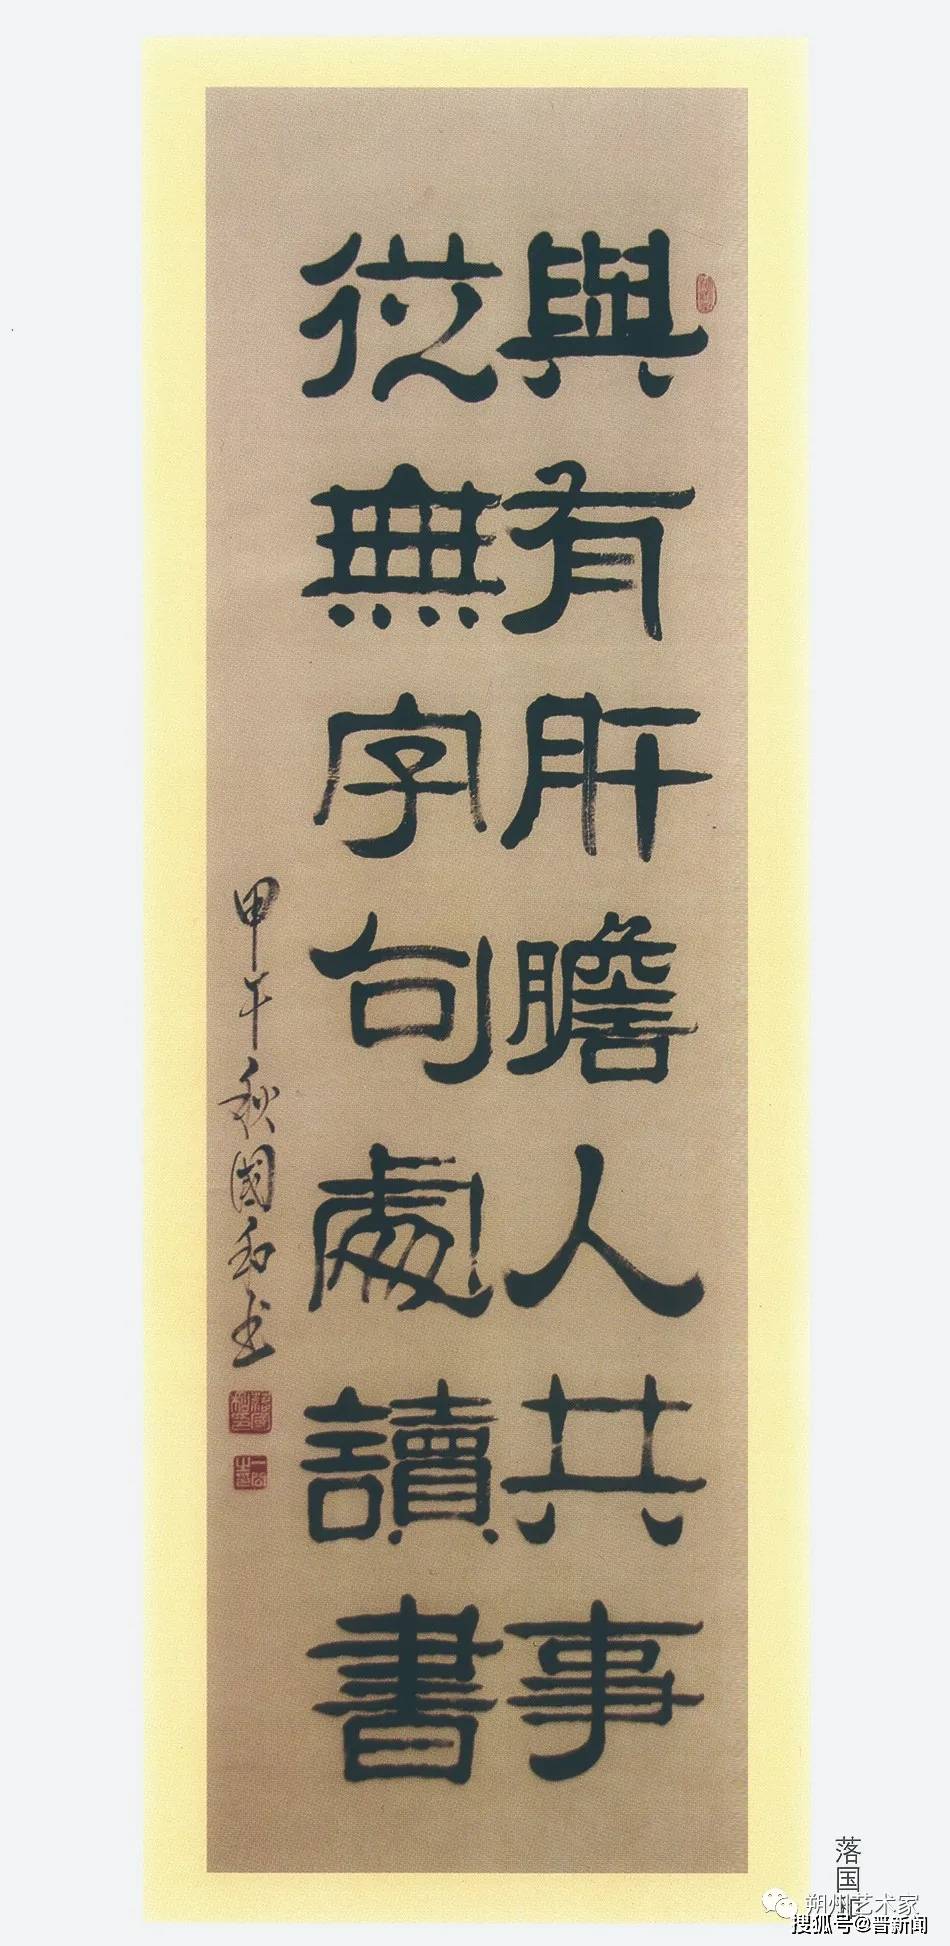 與有肝膽人共事
從無字句處讀書
甲午秋國和书
落国
朔州艺术家
搜狐号@晋新闻